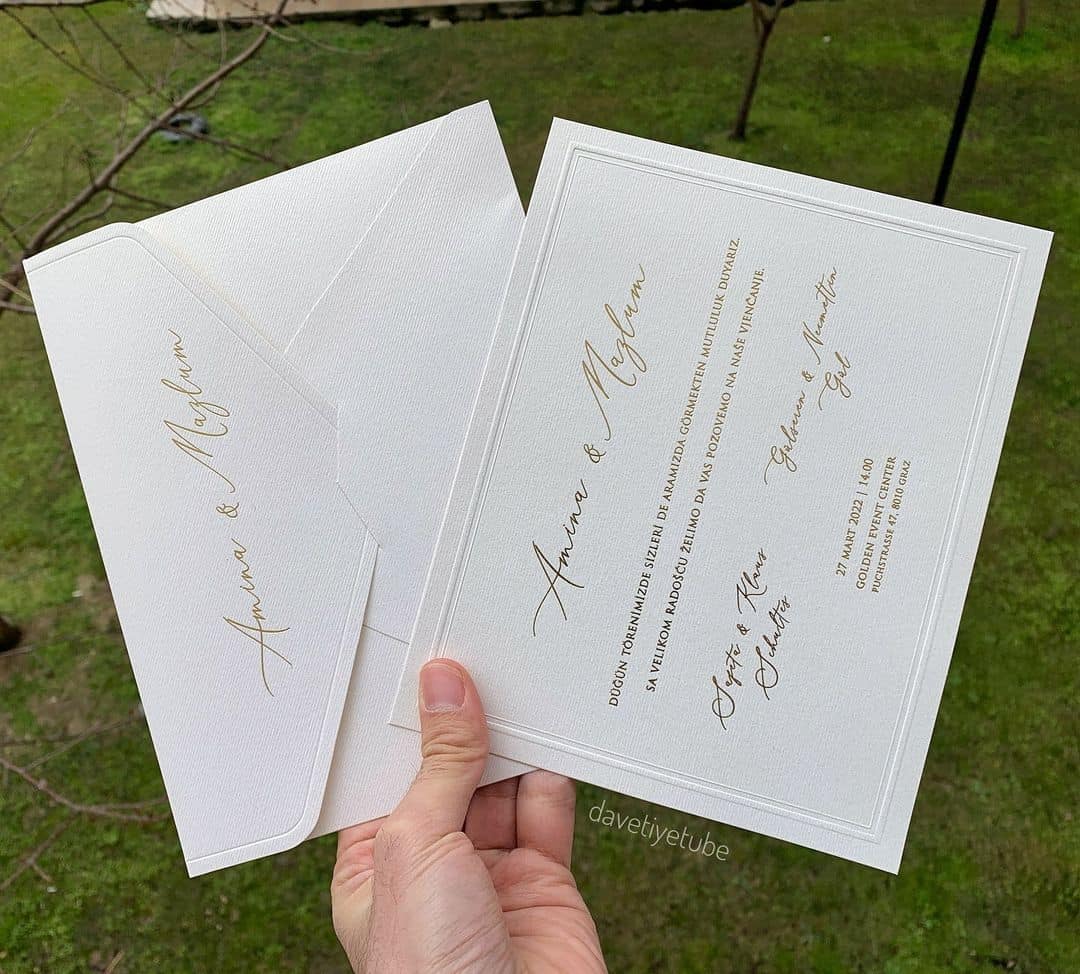 Amina & Mazlum
Amina & Mazlum
DÜĞÜN TÖRENİMİZDE SİZLERİ DE ARAMIZDA GÖRMEKTEN MUTLULUK DUYARIZ.
SA VELIKOM RADOŠĆU ŽELIMO DA VAS POZOVEMO NA NAŠE VJENČANJE.
Safeta & Klaus
Schultes
Gülseren & Necmettin
Gül
27 MART 2022 | 14.00
GOLDEN EVENT CENTER
PUCHSTRASSE 47, 8010 GRAZ
davetiyetube